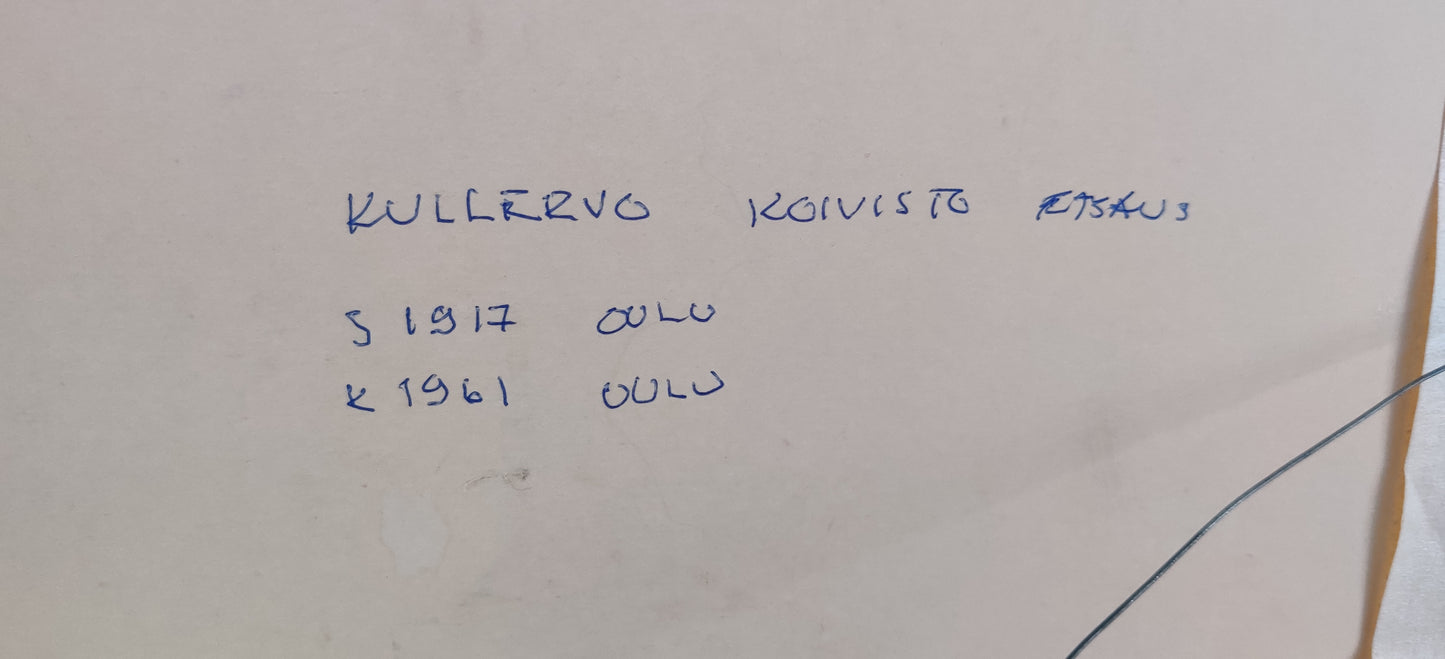 KULLERVO KOIVISTO
S 1917 OULU
K 1961 OULU